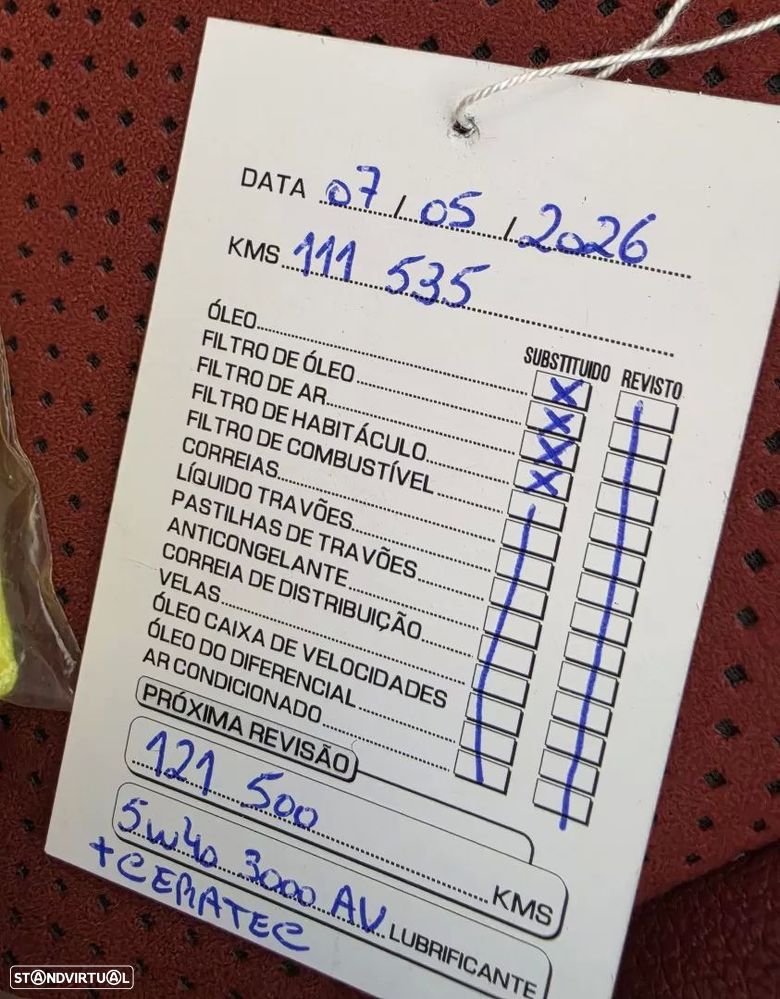 DATA 07 / 05 / 2026
KMS 111 535
SUBSTITUIDO REVISTO
ÓLEO X
FILTRO DE ÓLEO X
FILTRO DE AR X
FILTRO DE HABITÁCULO X
FILTRO DE COMBUSTÍVEL
CORREIAS
LÍQUIDO TRAVÕES
PASTILHAS DE TRAVÕES
ANTICONGELANTE
CORREIA DE DISTRIBUIÇÃO
VELAS
ÓLEO CAIXA DE VELOCIDADES
ÓLEO DO DIFERENCIAL
AR CONDICIONADO
PRÓXIMA REVISÃO
121 500 KMS
5W40 3000 AV LUBRIFICANTE
+CERATEC
STANDVIRTUAL